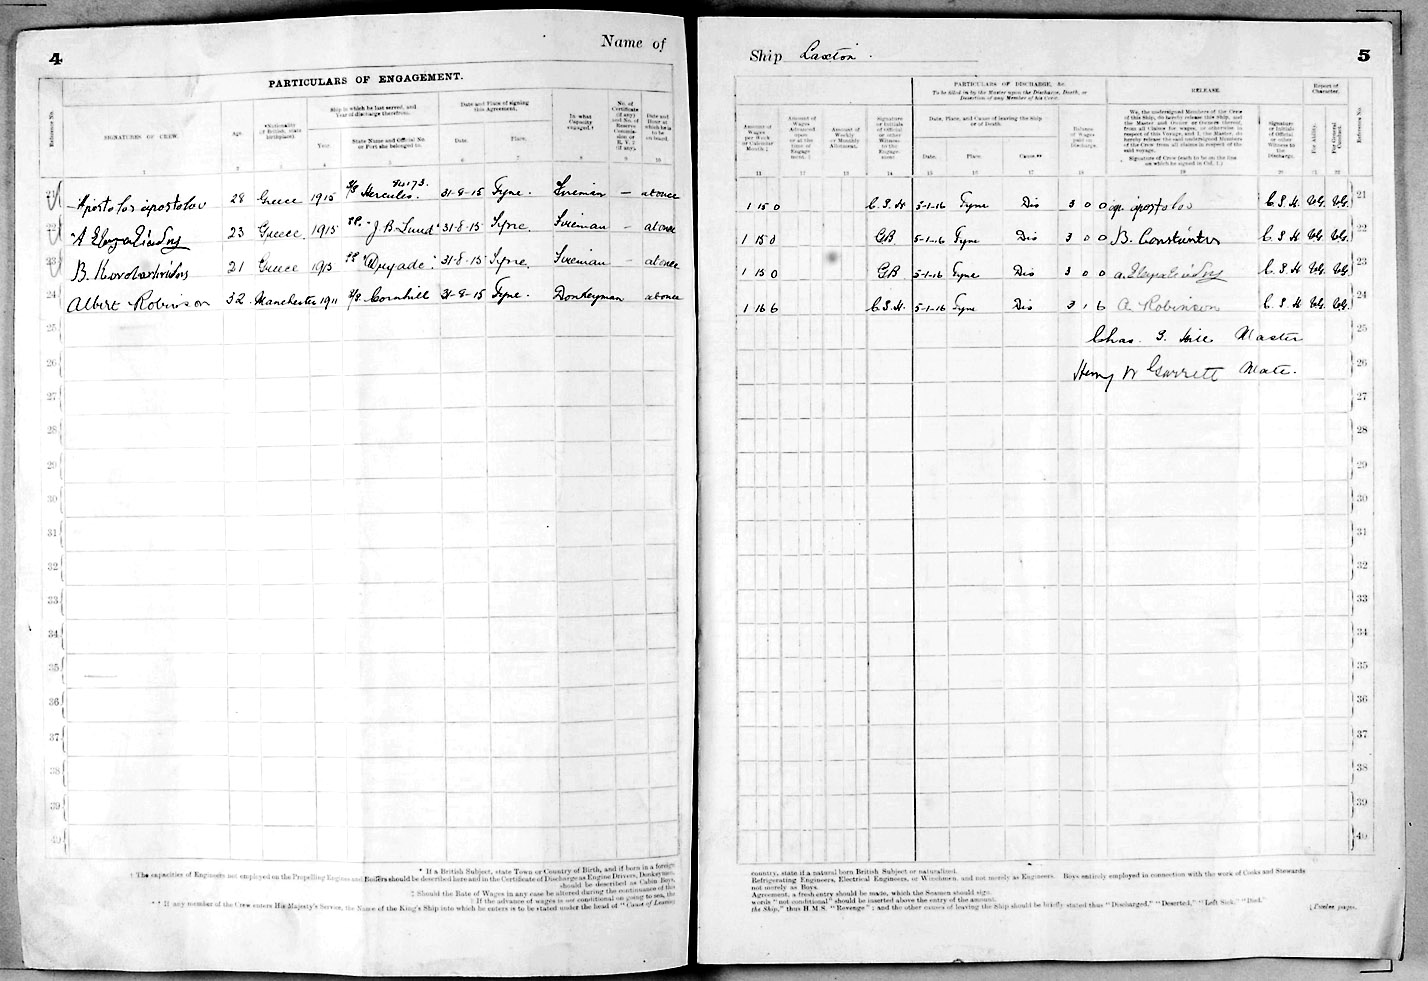 4
Name of
PARTICULARS OF ENGAGEMENT.
Reference No.
SIGNATURES OF CREW.
Age.
*Nationality (if British, state birthplace).
Ship in which he last served, and Year of discharge therefrom.
Year.
State Name and Official No. or Port she belonged to.
Date and Place of signing this Agreement.
Date.
Place.
In what Capacity engaged.†
No. of Certificate (if any) and No. of Reserve Commission or R.V.2 (if any).
Date and Hour at which he is to be on board.
1 2 3 4 5 6 7 8 9 10
21 Apostolos apostolou 28 Greece 1915 S/S Hercules. 31-8-15 Tyne. Fireman — at once
22 23 Greece 1915 "J B Lund" 31-8-15 Tyne. Fireman — at once
23 B. 21 Greece 1915 "Dryade". 31-8-15 Tyne. Fireman — at once
24 Albert Robinson 32 Manchester 1911 S/S Cornhill 31-8-15 Tyne. Donkeyman at once
25
26
27
28
29
30
31
32
33
34
35
36
37
38
39
40
* If a British Subject, state Town or Country of Birth, and if born in a foreign
† The capacities of Engineers not employed on the Propelling Engines and Boilers should be described here and in the Certificate of Discharge as Engine Drivers, Donkeymen,
should be described as Cabin Boys,
‡ Should the Rate of Wages in any case be altered during the continuance of this
§ If the advance of wages is not conditional on going to sea, the
** If any member of the Crew enters His Majesty's Service, the Name of the King's Ship into which he enters is to be stated under the head of "Cause of Leaving
Ship Laxton.
5
PARTICULARS OF DISCHARGE, &c.
To be filled in by the Master upon the Discharge, Death, or Desertion of any Member of his Crew.
RELEASE.
Report of Character.
Amount of Wages per Week or Calendar Month.‡
Amount of Wages Advanced upon or at the time of Engagement.‡
Amount of Weekly or Monthly Allotment.
Signature or Initials of Official or other Witness to the Engagement
Date, Place, and Cause of leaving the Ship or of Death.
Date.
Place.
Cause.**
Balance of Wages paid on Discharge.
We, the undersigned Members of the Crew of this Ship, do hereby release this Ship, and the Master and Owner or Owners thereof, from all Claims for wages, or otherwise in respect of this Voyage, and I, the Master, do hereby release the undersigned Members of the Crew from all claims in respect of the said voyage.
Signature of Crew (each to be on the line on which he signed in Col. 1.)
Signature or Initials of Official or other Witness to the Discharge.
For Ability.
For General Conduct.
Reference No.
11 12 13 14 15 16 17 18 19 20 21 22
1 15 0 C.S.H. 5-1-16 Tyne Dis 3 0 0 ap. apostolos C S H VG. VG. 21
1 15 0 GB 5-1-16 Tyne Dis 3 0 0 B. C S H VG. VG. 22
1 15 0 GB 5-1-16 Tyne Dis 3 0 0 C S H VG. VG. 23
1 16 6 C.S.H. 5-1-16 Tyne Dis 3 1 6 A Robinson C S H VG. VG. 24
Chas. G. Hill Master 25
Henry W Garrett Mate. 26
27
28
29
30
31
32
33
34
35
36
37
38
39
40
country, state if a natural born British Subject or naturalized.
Refrigerating Engineers, Electrical Engineers, or Winchmen, and not merely as Engineers. Boys entirely employed in connection with the work of Cooks and Stewards
not merely as Boys.
Agreement, a fresh entry should be made, which the Seamen should sign.
words "not conditional" should be inserted above the entry of the amount.
the Ship," thus H.M.S. "Revenge"; and the other causes of leaving the Ship should be briefly stated thus "Discharged," "Deserted," "Left Sick," "Died."
[Twelve pages.